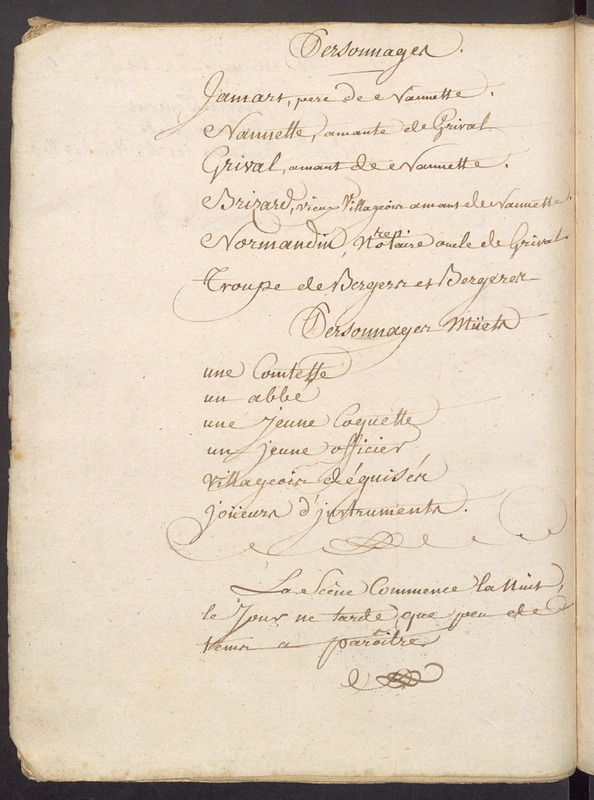 Personnages.
Jamart, pere de Nannette.
Nannette, amante de Grival
Grival, amant de Nannette.
Brizard, vieux Villageois amant de Nannette.
rep.
Normandin, Notaire oncle de Grival.
Troupe de Bergers et Bergeres
Personnages Müets
une Comtesse
un abbé
une jeune Coquette
un jeune officier
Villageois déguisés
joüeurs d'jnstruments.
La Scéne Commence la Nuit,
le Jour ne tarde que peu de
tems a paroître